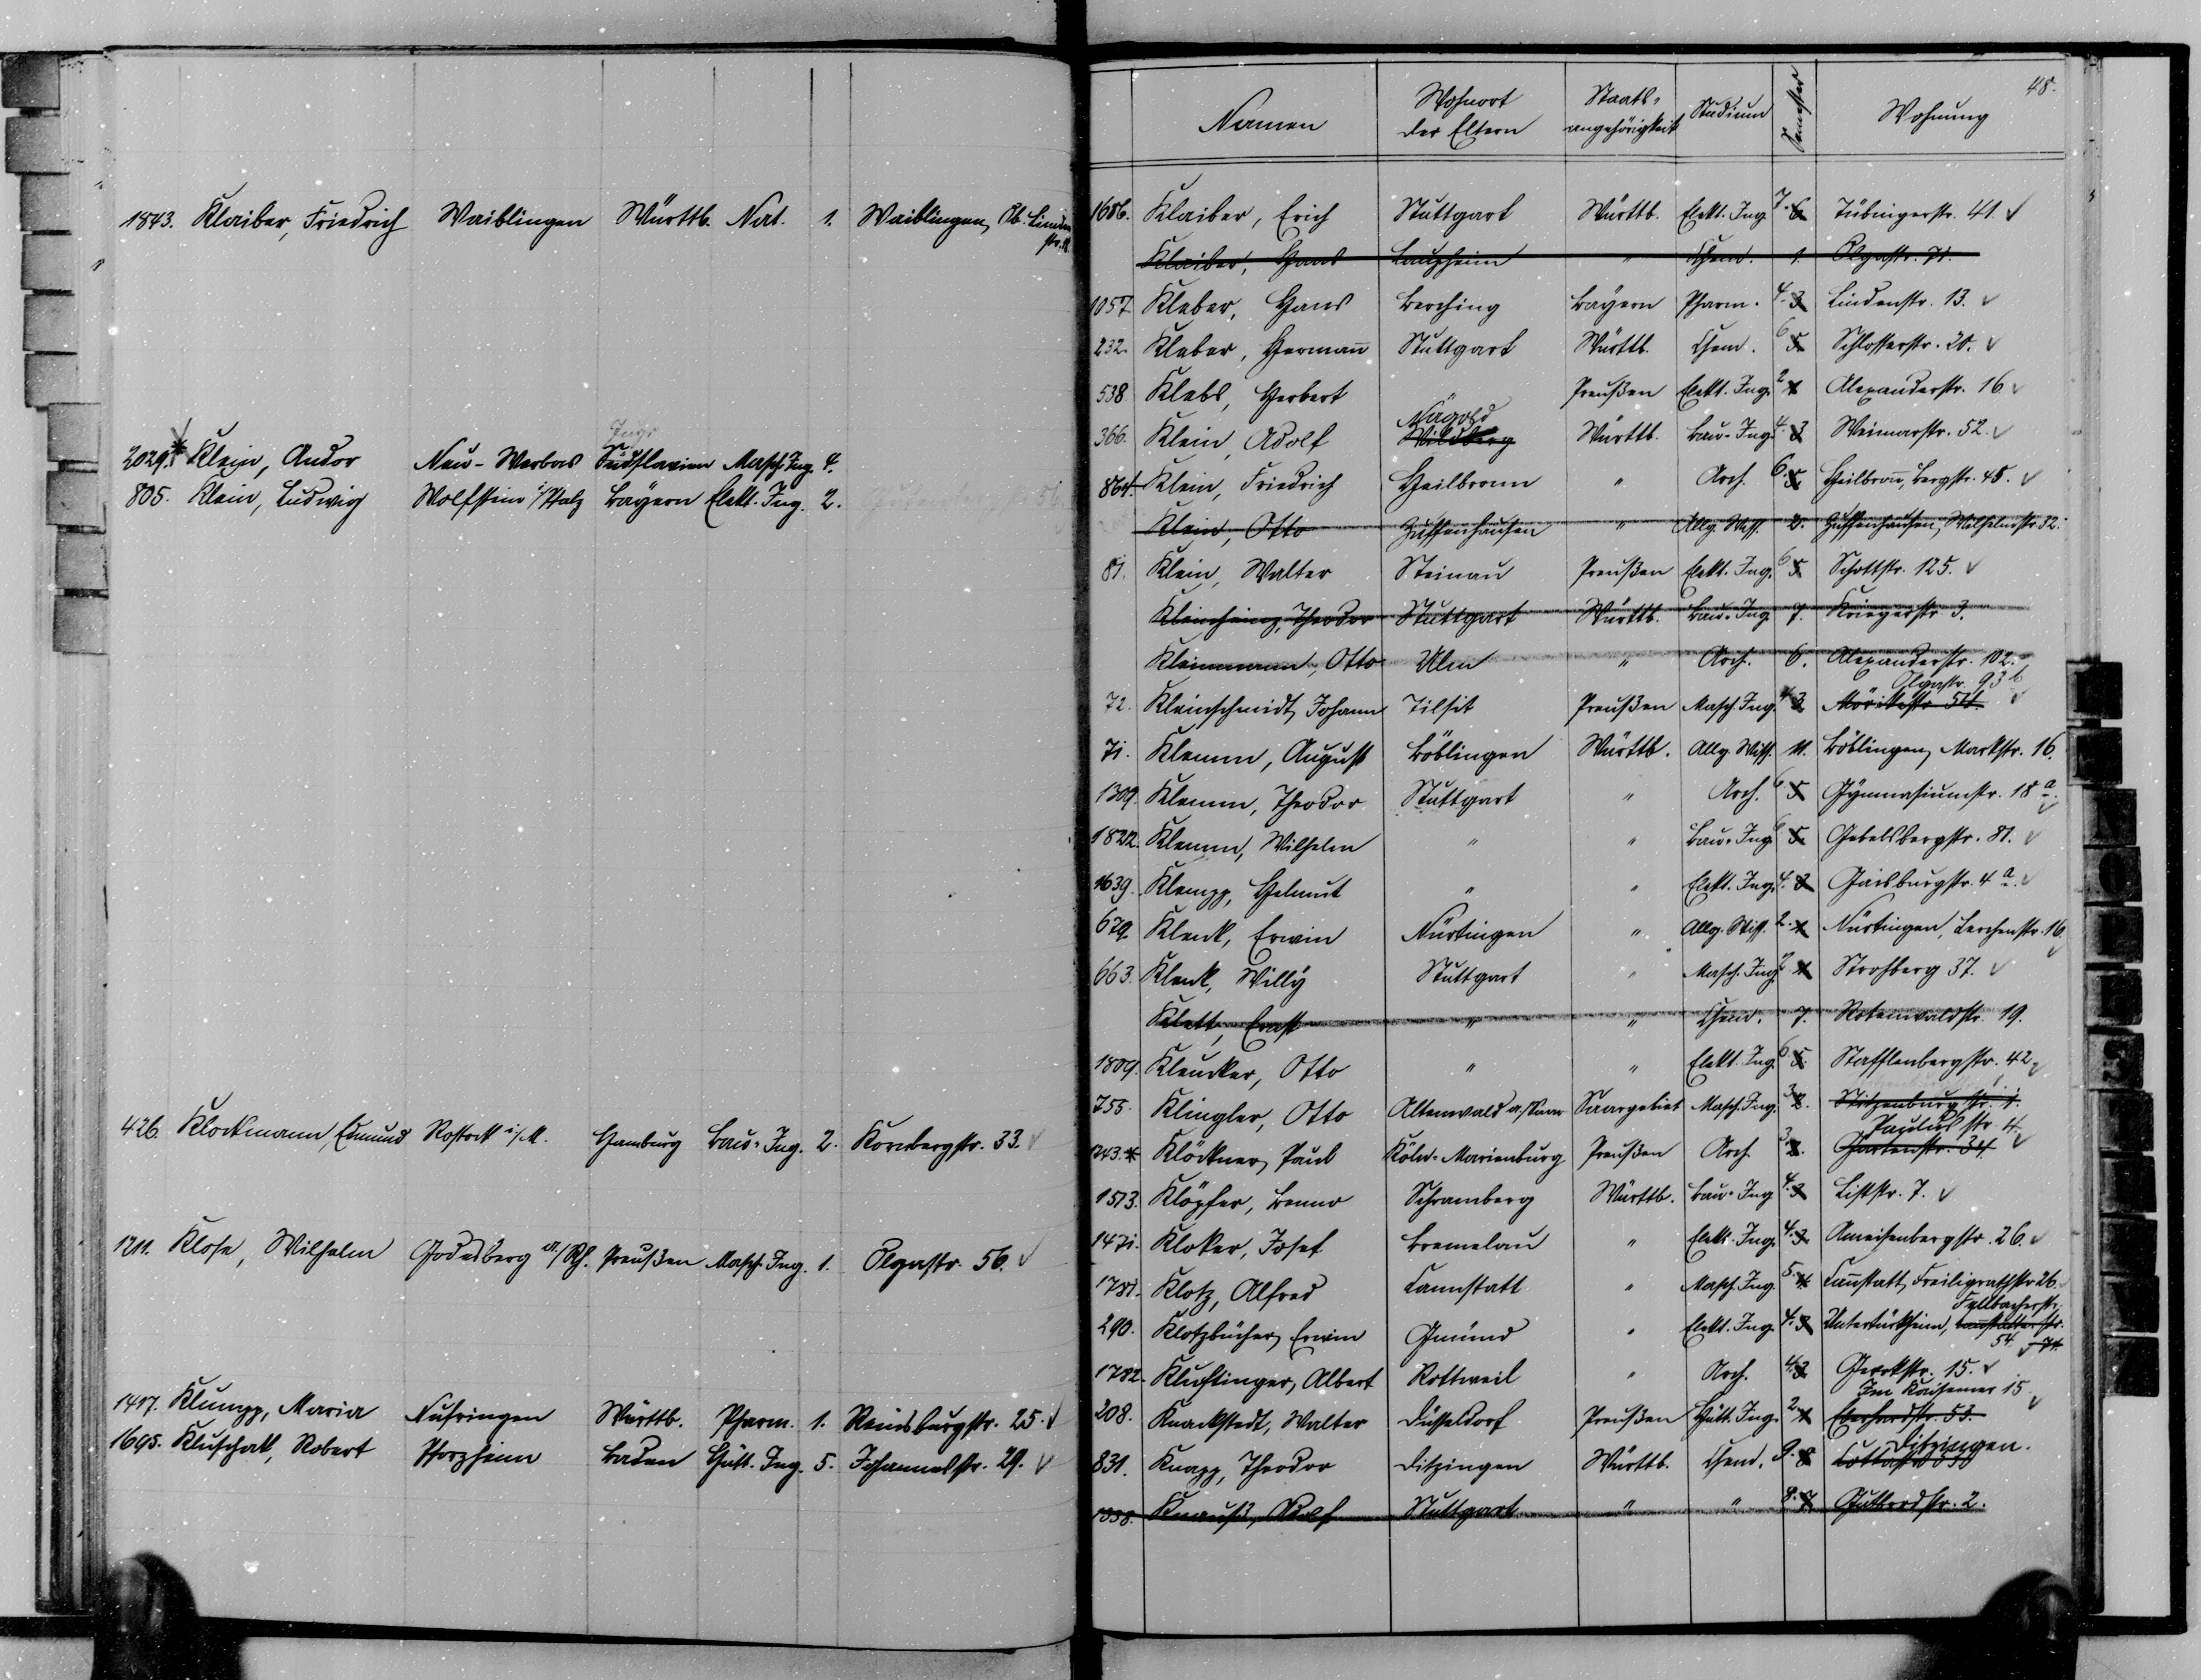 1843. Klaiber, Friedrich Waiblingen Württb. Nat. 1. Waiblingen, Ob. Linden
str.
Jugo
2029. * Klein, Andor Neu-Werbas Südslavien Masch. Ing. 4.
805. Klein, Ludwig Wolfstein i/Pfalz Bayern Elekt. Ing. 2.
426. Klockmann, Edmund Rostock i/M. Hamburg Bau-Ing. 2. Kornbergstr. 33.
1211. Klose, Wilhelm Godesberg a/Rh. Preußen Masch. Ing. 1. Olgastr. 56.
1417. Klumpp, Maria Nufringen Württb. Pharm. 1. Reinsburgstr. 25.
1695. Kluschatt, Robert Pforzheim Baden Hütt. Ing. 5. Johannesstr. 29.
48.
Namen Wohnort der Eltern Staats-angehörigkeit Studium Semester Wohnung
1686. Klaiber, Erich Stuttgart Württb. Elekt. Ing. 7. 6. Tübingerstr. 41.
Klaiber, Hans Laupheim " Chem. 1. Olgastr. 71.
1057 Kleber, Hans Berching Bayern Pharm. 4. 3 Lindenstr. 13.
232. Kleber, Hermann Stuttgart Württb. Chem. 6 5. Schlosserstr. 20.
538 Klebs, Herbert " Preußen Elekt. Ing. 2 1 Alexanderstr. 16
Nagold
366. Klein, Adolf Wildberg Württb. Bau-Ing. 4. 3 Weimarstr. 52.
864. Klein, Friedrich Heilbronn " Arch. 6. 5 Heilbronn, Bergstr. 45.
Klein, Otto Zuffenhausen " Allg. Wiss. 2. Zuffenhausen, Wilhelmstr. 32.
81. Klein, Walter Steinau Preußen Elekt. Ing. 6 5. Schottstr. 125.
Kleinheinz, Theodor Stuttgart Württb. Bau-Ing. 7. Kriegerstr. 3.
Kleinmann, Otto Ulm " Arch. 6. Alexanderstr. 102.
Olgastr. 93 b
72. Kleinschmidt, Johann Tilsit Preußen Masch. Ing. 4 3 Mörikestr. 54.
71. Klemm, August Böblingen Württb. Allg. Wiss. 11. Böblingen, Markstr. 16.
1309. Klemm, Theodor Stuttgart " Arch. 6 5 Gymnasiumstr. 18 a.
1822. Klemm, Wilhelm " " Bau-Ing. 6 5 Gebelsbergstr. 81.
1639. Klempp, Helmut " " Elekt. Ing. 4. 3 Gaisburgstr. 4 a.
679. Klenk, Erwin Nürtingen " Allg. Wiss. 2. 1 Nürtingen, Lerchenstr. 16.
663. Klenk, Willy Stuttgart " Masch. Ing. 2 1 Strohberg 37.
Klett, Ernst " " Chem. 7. Rotenwaldstr. 19.
1809. Kleucker, Otto " " Elekt. Ing. 6 5. Stafflenbergstr. 42.
755. Klingler, Otto Altenwald a./Saar Saargebiet Masch. Ing. 3 2. Stitzenburgstr. 1.
Paulusstr 4.
1243. * Klöckner, Paul Köln-Marienburg Preußen Arch. 3. 2. Gartenstr. 34
1513. Klöpfer, Benno Schramberg Württb. Bau-Ing 4. 3 Liststr. 7.
1471. Kloker, Josef Bremelau " Elekt. Ing. 4. 3. Ameisenbergstr. 26.
1781. Klotz, Alfred Cannstatt " Masch. Ing. 5. 4 Cannstatt, Freiligrathstr. 26.
Fellbacherstr.
290. Klotzbücher, Erwin Gmünd " Elekt. Ing. 4. 3 Untertürkheim, Cannstatterstr.
54. 74.
1782. Kluftinger, Albert Rottweil " Arch. 4. 3. Gerokstr. 15.
Im Kaisemer 15
208. Knackstedt, Walter Düsseldorf Preußen Hütt. Ing. 2. 1 Eberhardstr. 53.
Ditzingen.
831. Knapp, Theodor Ditzingen Württb. Chem. 9. 8 Cottastr.
1338. Knauß, Adolf Stuttgart " " 8. 7. Gutbrodstr. 2.